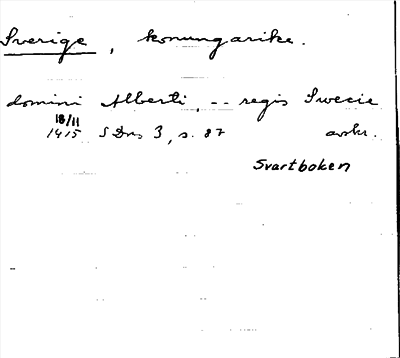 Sverige, konungarike.
domini Alberti, -- regis Swecie
18/11
1415 SDns 3, s. 87 avskr.
Svartboken